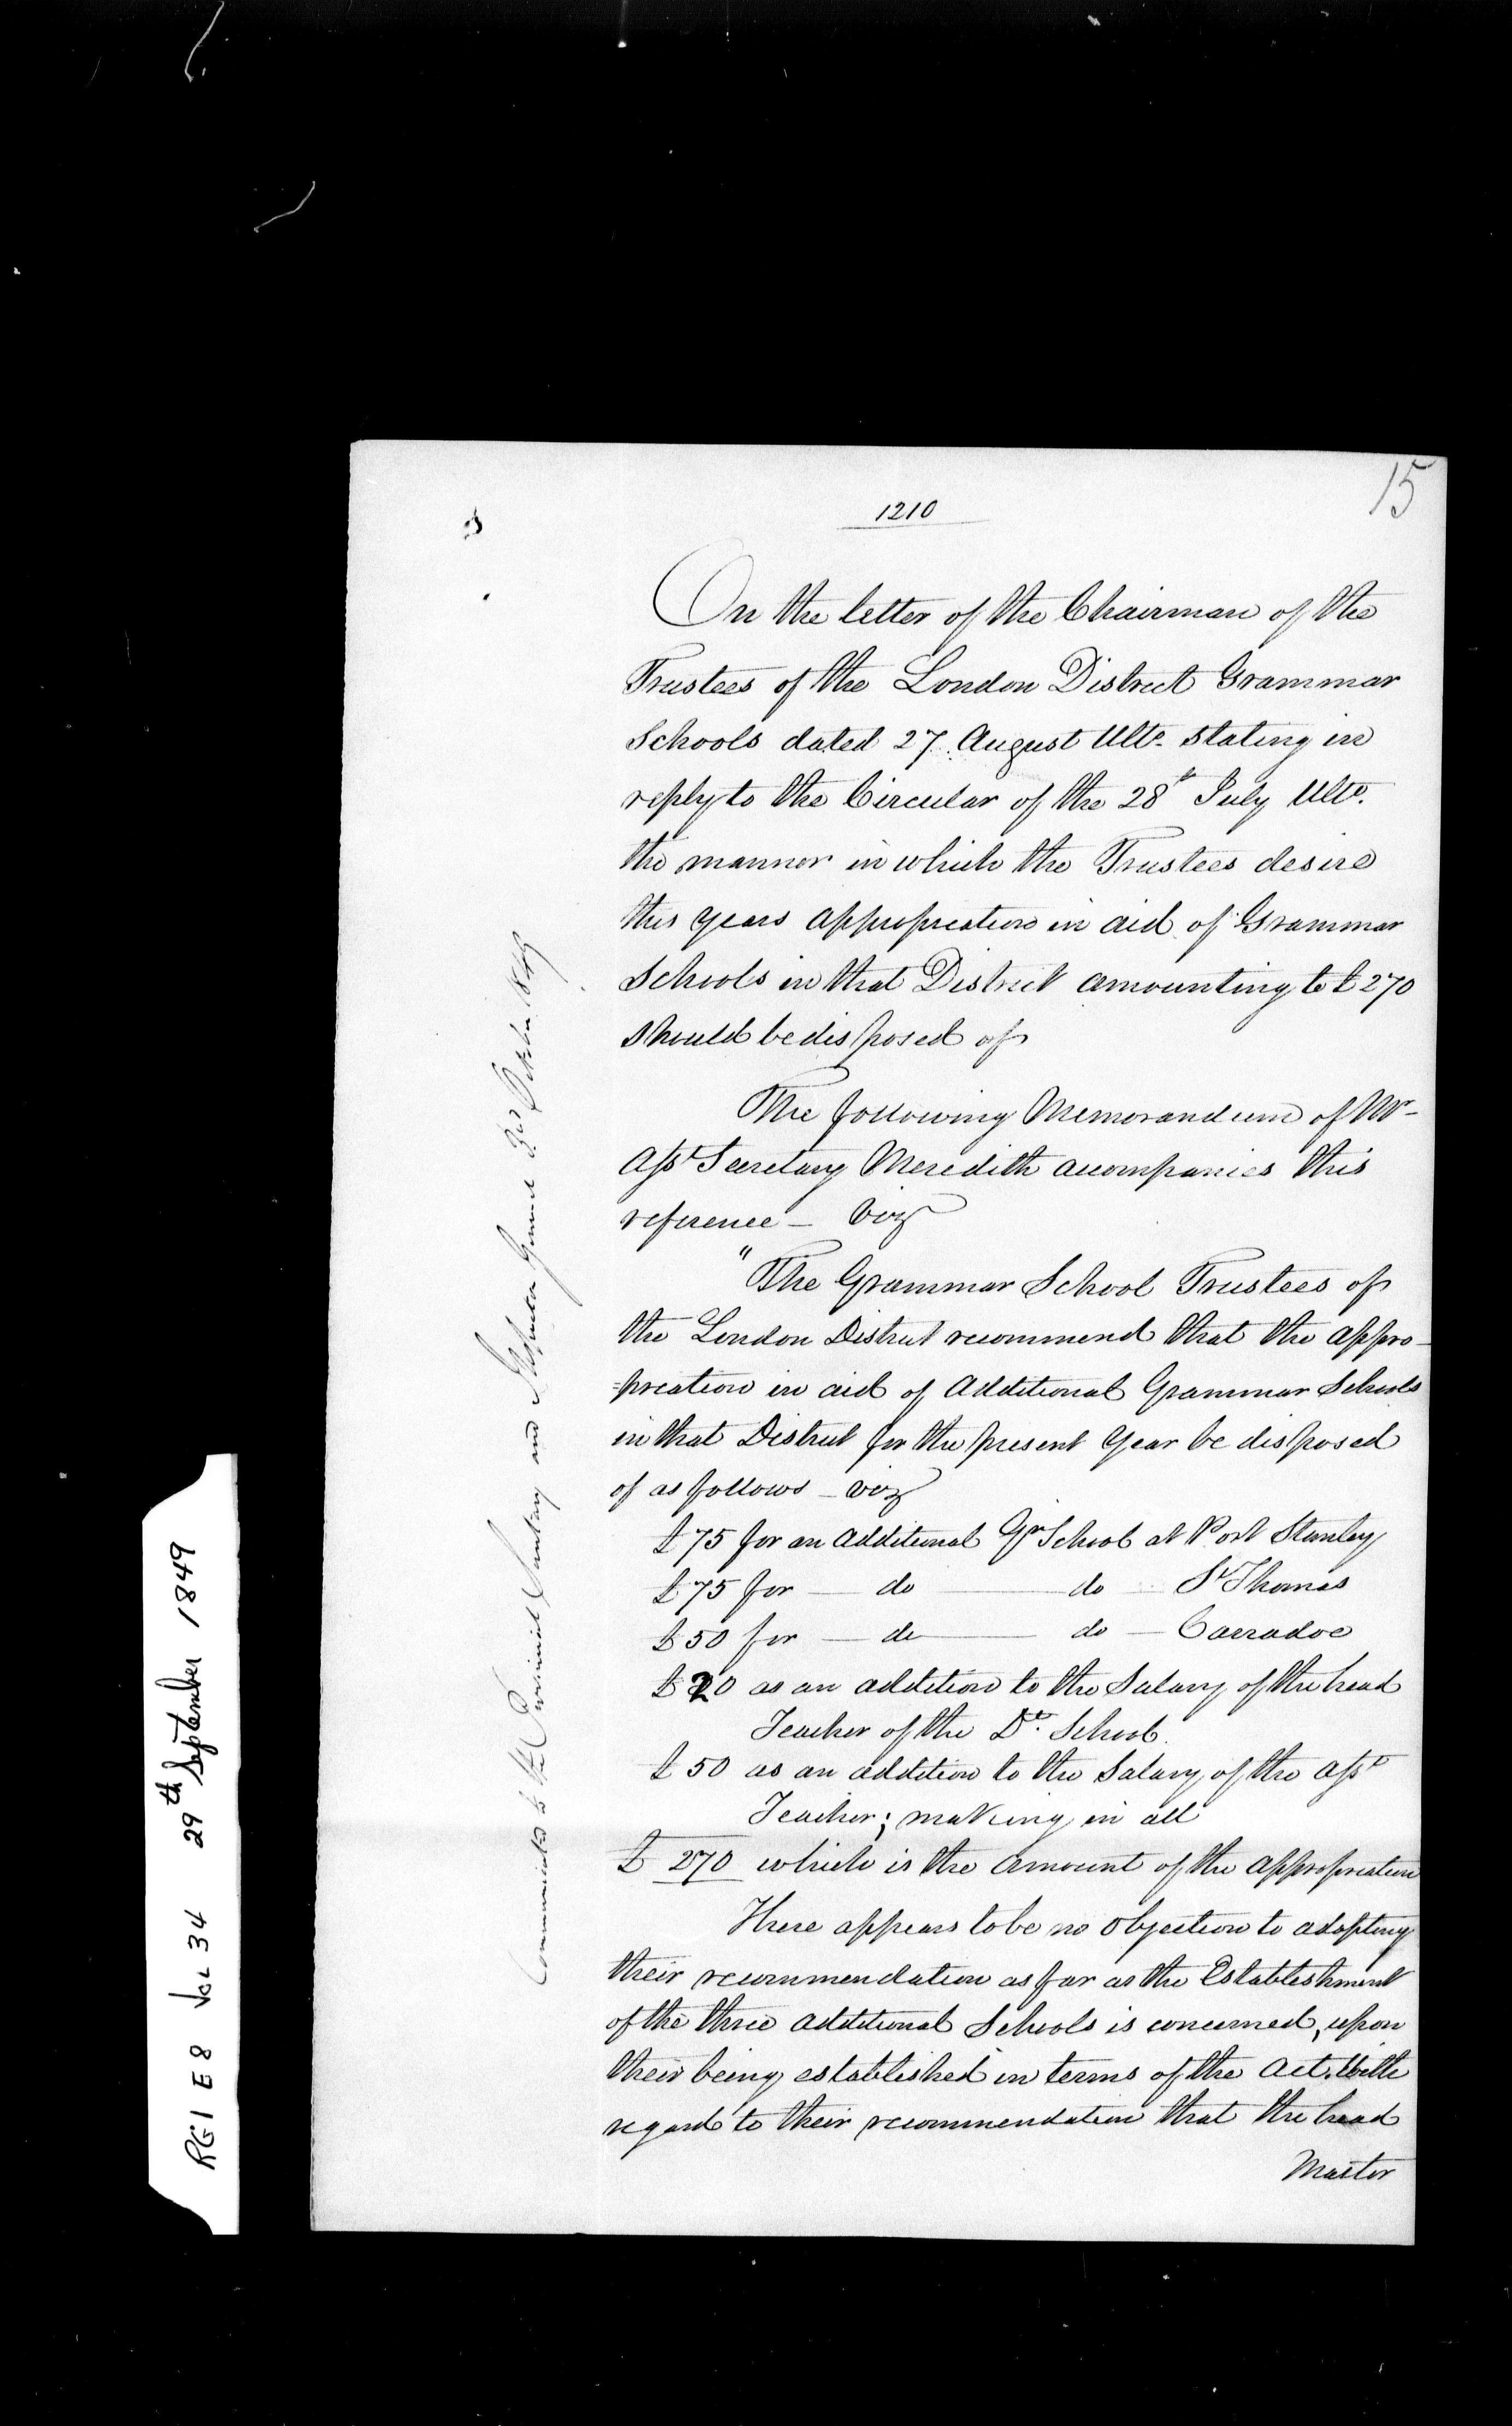 15
1210
On the letter of the Chairman of the
Trustees of the London District Grammar
Schools dated 27 August Ulto. stating in
reply to the Circular of the 28th July Ulto.
the manner in which the Trustees desire
this years appropreation in aid of Grammar
Schools in that District amounting to £270
should be disposed of
The following Memorandum of Mr
Asst Secretary Meredith accompanies this
reference – Viz
"The Grammar School Trustees of
the London District recommend that the appro-
=preation in aid of additional Grammar Schools
in that District for the present Year be disposed
of as follows – viz
£75 for an additional Gr School at Port Stanley
£75 for — do — do — St Thomas
£50 for — do — do — Carradoc
£20 as an addition to the Salary of the head
Teacher of the Dt. School.
£50 as an addition to the Salary of the Asst
Teacher; making in all
£270 which is the amount of the appropreation
There appears to be no objection to adopting
their recommendation as far as the Establishment
of the three additional Schools is concerned, upon
their being established in terms of the Act. With
regard to their recommendation that the head
Master
Communicated to the Provincial Secretary and Inspector General 3rd October 1849
RG1 E8 Vol 34 29th September 1849